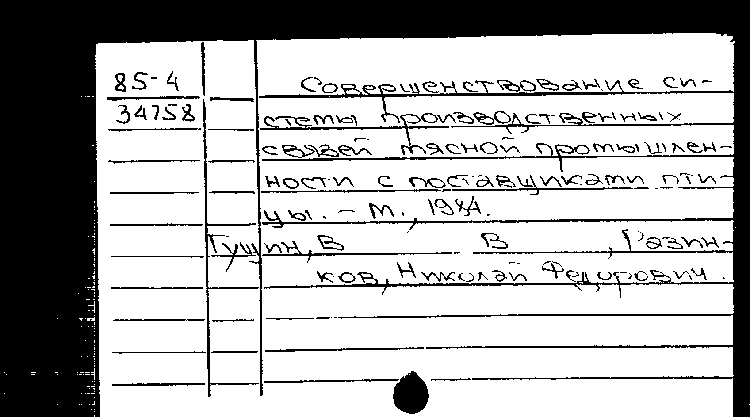 85-4 Совершенствование си-
34758 стемы производственных
связей мясной промышлен-
ности с поставщиками пти-
цы. - М., 1984.
Гущин, В В , Разин-
ков, Николай Федорович.